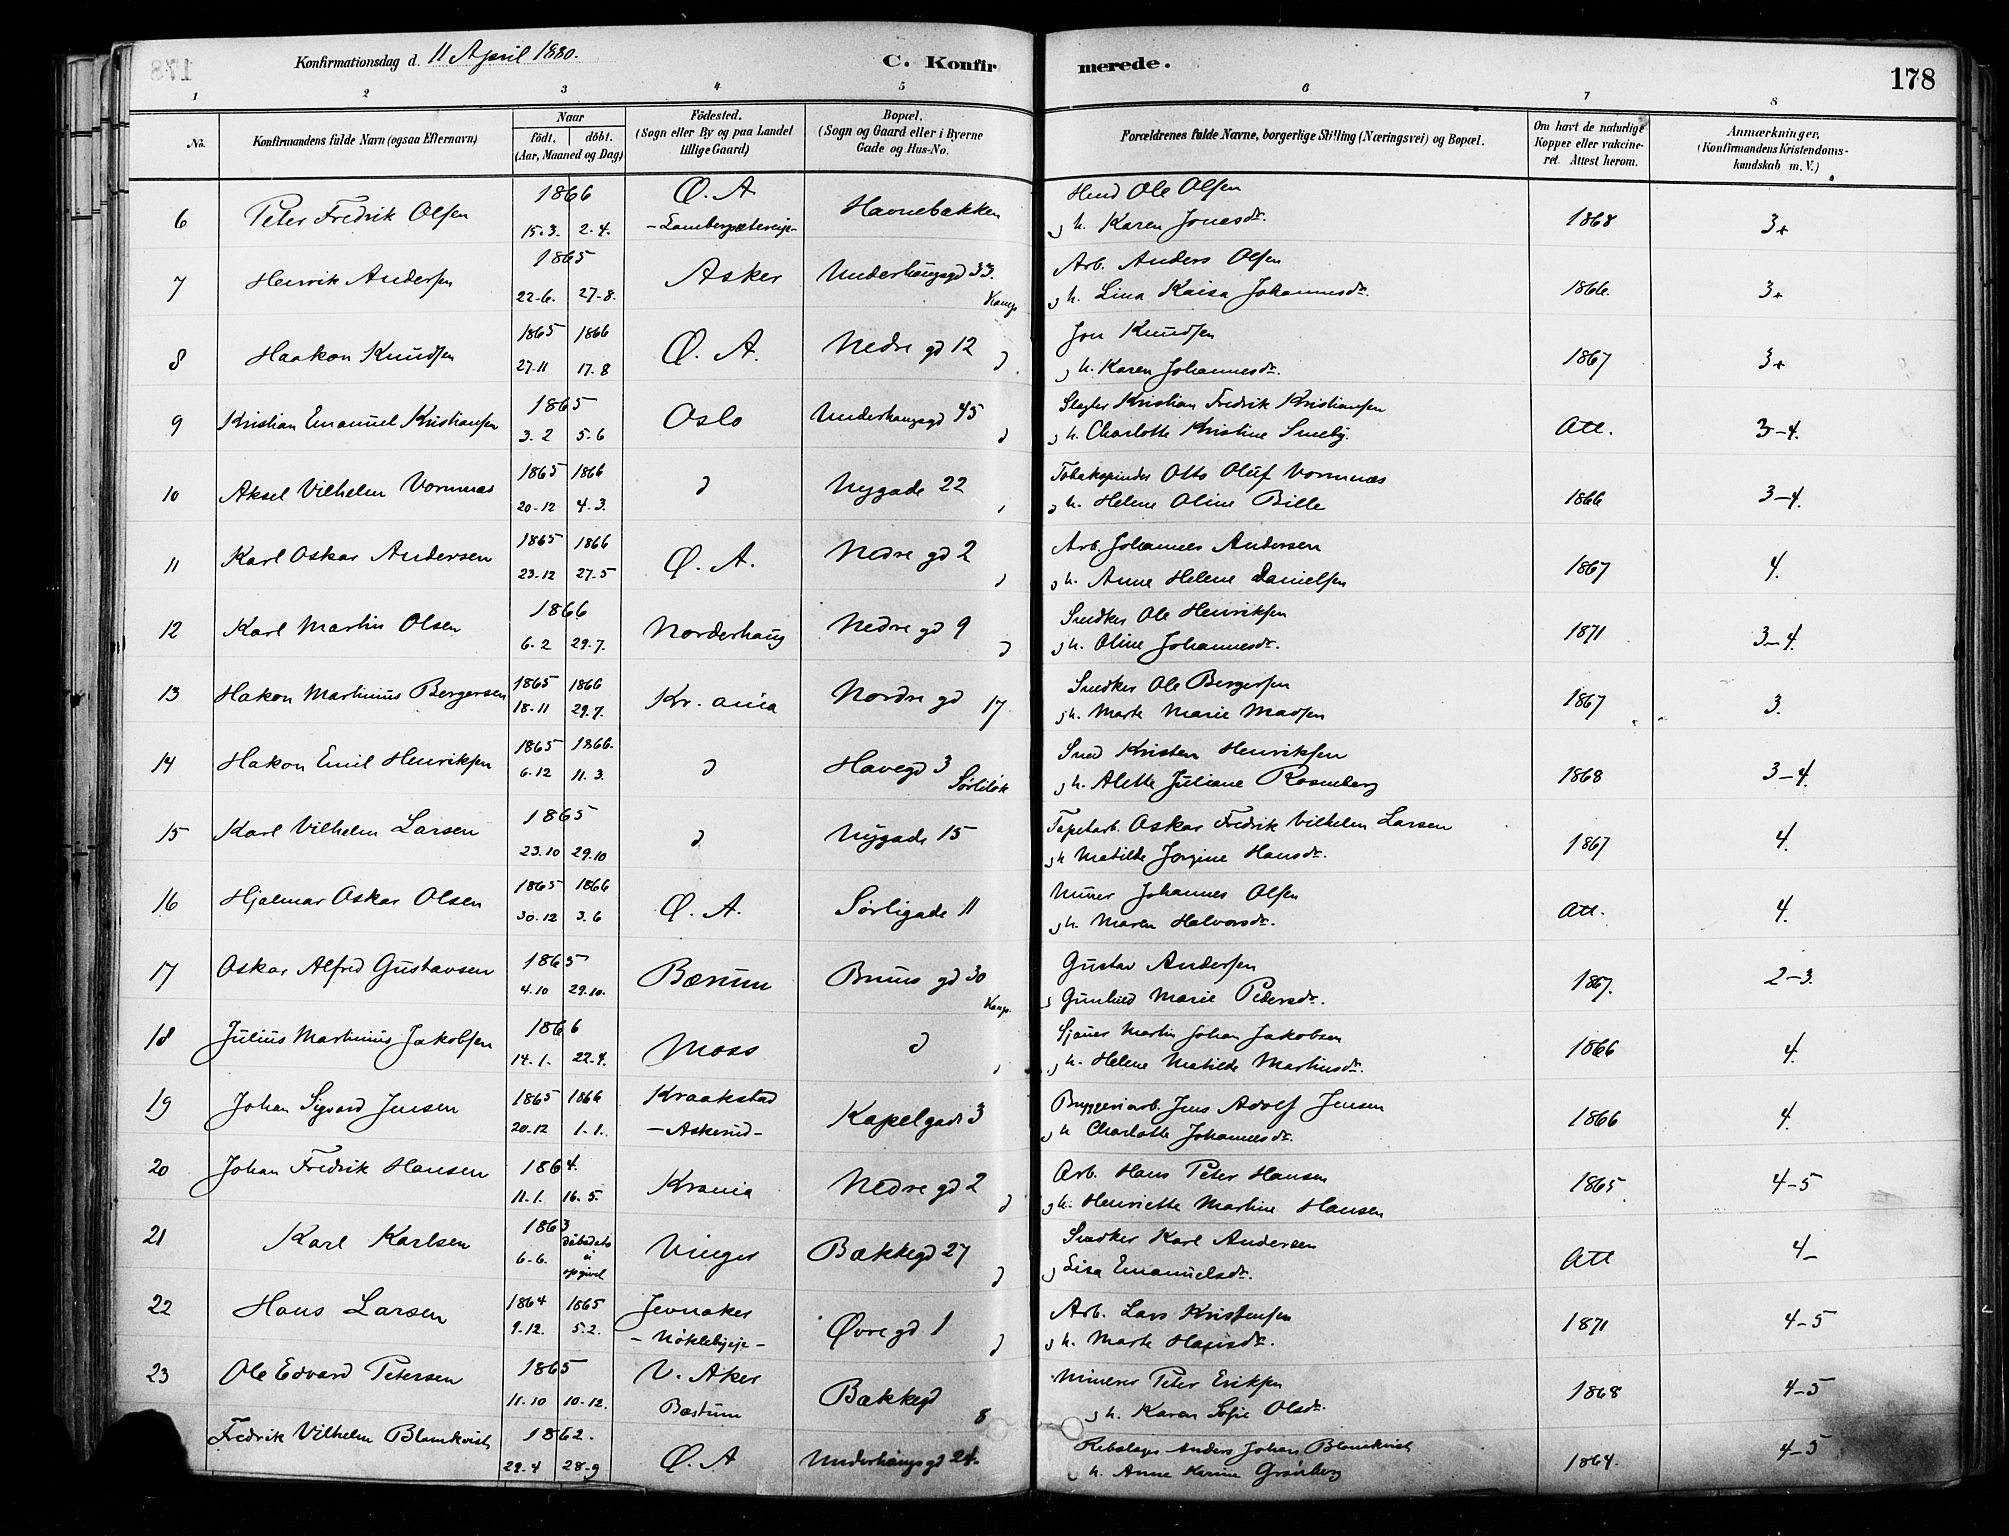 Konfirmationsdag d. 11 April 1880.
C. Konfirmerede.
178
1 2 3 4 5 6 7 8
No.
Konfirmandens fulde Navn (ogsaa Efternavn)
Naar
født. døbt.
(Aar, Maaned og Dag)
Födested.
(Sogn eller By og paa Landet
tillige Gaard)
Bopæl.
(Sogn og Gaard eller i Byerne
Gade og Hus-No.
Forældrenes fulde Navne, borgerlige Stilling (Næringsvei) og Bopæl.
Om havt de naturlige
Kopper eller vakcine-
ret. Attest herom.
Anmærkninger,
(Konfirmandens Kristendoms-
kundskab m. V.)
6 Peter Fredrik Olsen 1866 15-3. 2-4. Ø. A Havnebakken Ole Olsen
h. Karen Jonasdr. 1868 3+
7 Henrik Andersen 1865 22-6. 27-8. Asker Underhaugsgd 33. Kamp Arb. Anders Olsen
h. Lina Kaisa Johannesdr. 1866. 3+
8 Haakon Knudsen 1865 1866 27-11 17-8 Ø. A. Nedre gd 12 Jon Knudsen
h. Karen Johannesdr. 1867 3+
9 Kristian Emanuel Kristiansen 1865 3-2 5-6 Oslo Underhaugsgd 45 Slagter Kristian Fredrik Kristiansen
h. Charlotte Kristine Smeby. Att. 3-4.
10 Aksel Vilhelm Vormnæs 1865 1866 20-12 4-3. Nygade 22 Tobakspinder Otto Oluf Vormnæs
h. Helene Oline Bille 1866 3-4.
11 Karl Oskar Andersen 1865 1866 23-12 27-5 Ø. A. Nedre gd 2 Arb. Johannes Andersen
h. Anne Helene Danielsen 1867 4.
12 Karl Martin Olsen 1866 6-2 29-7. Norderhaug Nedre gd 9 Snedker Ole Henriksen
h. Oline Johannesdr. 1871 3-4.
13 Hakon Martinius Bergersen 1865 1866 18-11 29.7. Kr.ania Nordre gd 17 Snedker Ole Bergersen
h. Marte Marie Madsen 1867 3.
14 Hakon Emil Henriksen 1865 1866. 6-12 11-3. Havegd 3 Smed Kristen Henriksen
h. Alette Juliane Rosenberg 1868 3-4.
15 Karl Vilhelm Larsen 1865 23.10 29.10 Nygade 15 Tapetarb. Oskar Fredrik Vilhelm Larsen
h Matilde Jorgine Hansdr. 1867 4.
16 Hjalmar Oskar Olsen 1865 1866 30-12 3.6 Ø. A. Sørligade 11 Murer Johannes Olsen
h. Maren Halvorsdr. Att. 4.
17 Oskar Alfred Gustavsen 1865 4.10 29.10. Bærum Bruus gd 30 Kamp. Gustav Andersen
Gunhild Marie Pedersdr. 1867. 2-3.
18 Julius Martinius Jakobsen 1866 14-1. 22-4. Moss Sjauer Martin Johan Jakobsen
h. Helene Matilde Martinsdr. 1866 4.
19 Johan Sigvard Jensen 1865 1866 20-12 1-1. Kraakstad - Askerud - Kapelgade 3 Bryggeriarb. Jens Adolf Jensen
h Charlotte Johannesdr. 1866 4.
20 Johan Fredrik Hansen 1864. 11.1. 16.5. Krania Nedre gd 2 Arb. Hans Peter Hansen
h. Henriette Martine Hansen 1865 4-5
21 Karl Karlsen 1863 6-6. dåbsdato ei opgivet Vinger Bækkegd 27 Snedker Karl Andersen
Lisa Emanuelsdr. Att 4-
22 Hans Larsen 1864 1865 9-12. 5.2. Jevnaker - Nøklebyeje - Øvregd 1 Arb. Lars Kristensen
h. Marte Hansdr. 1871 4-5
23 Ole Edvard Petersen 1865 11-10 10-12. V. Aker Bæstum Bækkegd 8 Minerer Peter Eriksen
h. Karen Sofie Olsdr. 1868 4-5
Fredrik Vilhelm Blomkvist 1862. 29.4 28-9 Ø. A Underhaugsgd 24. Rebslager Anders Johan Blomkvist
h. Anne Karine Grønberg 1864. 4-5